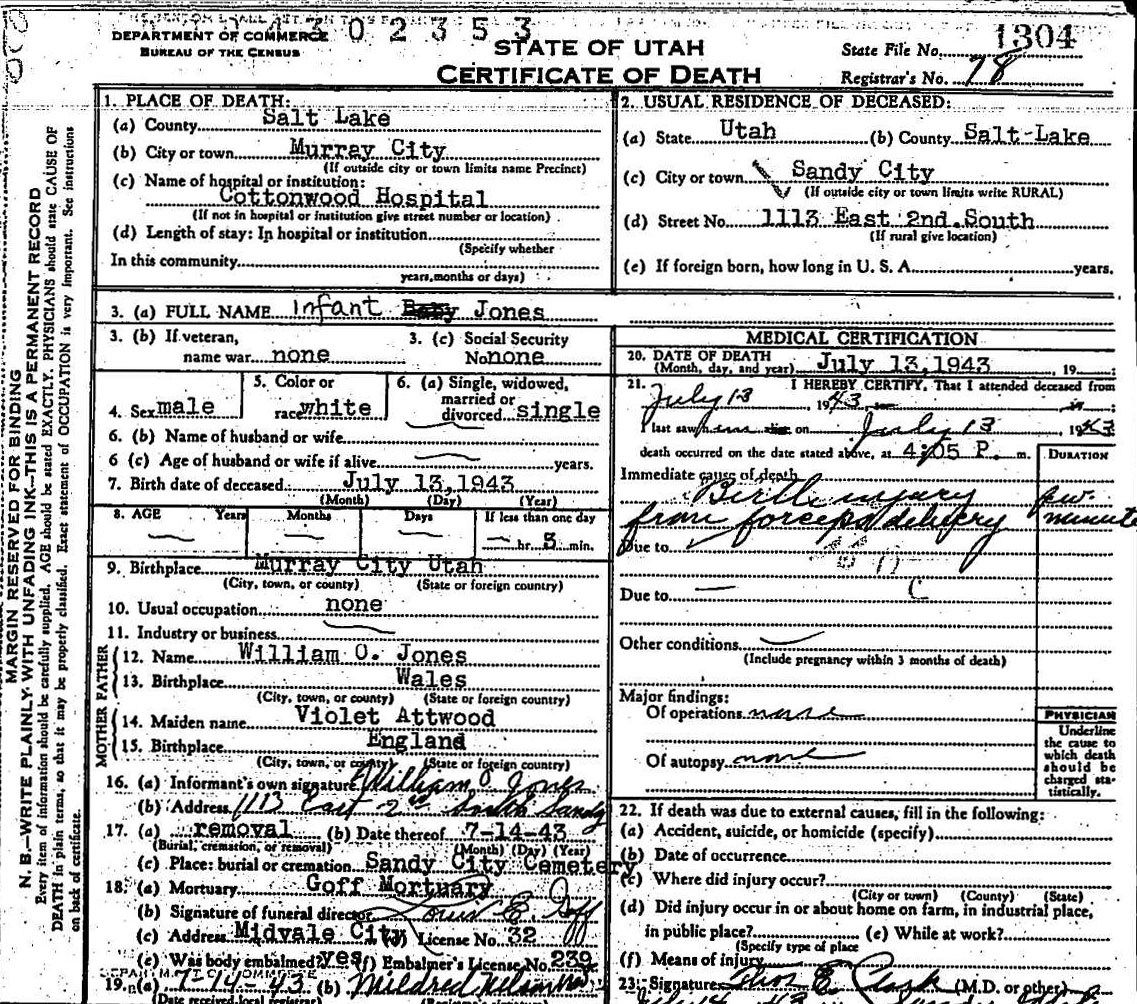 302353
DEPARTMENT OF COMMERCE
BUREAU OF THE CENSUS
STATE OF UTAH
CERTIFICATE OF DEATH
State File No. 1304
Registrar's No. 78
MARGIN RESERVED FOR BINDING
N. B.—WRITE PLAINLY WITH UNFADING INK—THIS IS A PERMANENT RECORD
Every item of information should be carefully supplied. AGE should be stated EXACTLY. PHYSICIANS should state CAUSE OF
DEATH in plain terms, so that it may be properly classified. Exact statement of OCCUPATION is very important. See instructions
on back of certificate.
1. PLACE OF DEATH:
(a) County Salt Lake
(b) City or town Murray City
(If outside city or town limits name Precinct)
(c) Name of hospital or institution:
Cottonwood Hospital
(If not in hospital or institution give street number or location)
(d) Length of stay: In hospital or institution
(Specify whether
In this community
years, months or days)
2. USUAL RESIDENCE OF DECEASED:
(a) State Utah (b) County Salt-Lake
(c) City or town Sandy City
(If outside city or town limits write RURAL)
(d) Street No. 1113 East 2nd.South
(If rural give location)
(e) If foreign born, how long in U. S. A. years.
3. (a) FULL NAME infant Baby Jones
3. (b) If veteran,
name war none
3. (c) Social Security
No none
4. Sex male
5. Color or
race white
6. (a) Single, widowed,
married or
divorced single
6. (b) Name of husband or wife
6 (c) Age of husband or wife if alive years.
7. Birth date of deceased July 13,1943
(Month) (Day) (Year)
8. AGE Years Months Days If less than one day
hr. 5 min.
9. Birthplace Murray City Utah
(City, town, or county) (State or foreign country)
10. Usual occupation none
11. Industry or business
FATHER
12. Name William O. Jones
13. Birthplace Wales
(City, town, or county) (State or foreign country)
MOTHER
14. Maiden name Violet Attwood
15. Birthplace England
(City, town, or county) (State or foreign country)
16. (a) Informant's own signature William O. Jones
(b) Address 1113 East 2nd South Sandy
17. (a) removal (b) Date thereof 7-14-43
(Burial, cremation, or removal) (Month) (Day) (Year)
(c) Place: burial or cremation Sandy City Cemetery
18. (a) Mortuary Goff Mortuary
(b) Signature of funeral director Louis E. Goff
(c) Address Midvale City (d) License No. 32
(e) Was body embalmed? yes (f) Embalmer's License No. 239
19. (a) 7-14-43 (b) Mildred
(Date received local registrar)
MEDICAL CERTIFICATION
20. DATE OF DEATH
(Month, day, and year) July 13,1943, 19
21. I HEREBY CERTIFY, That I attended deceased from
July 13, 1943
I last saw him on July 13 1943
death occurred on the date stated above, at 4:05 P. m.
DURATION
Immediate cause of death
Birth injury few
from forceps delivery minute
Due to
Due to
Other conditions
(Include pregnancy within 3 months of death)
Major findings:
Of operations none
Of autopsy none
PHYSICIAN
Underline
the cause to
which death
should be
charged sta-
tistically.
22. If death was due to external causes, fill in the following:
(a) Accident, suicide, or homicide (specify)
(b) Date of occurrence
(c) Where did injury occur?
(City or town) (County) (State)
(d) Did injury occur in or about home on farm, in industrial place,
in public place? (e) While at work?
(Specify type of place
(f) Means of injury
23. Signature Thos E. Clark (M.D. or other)